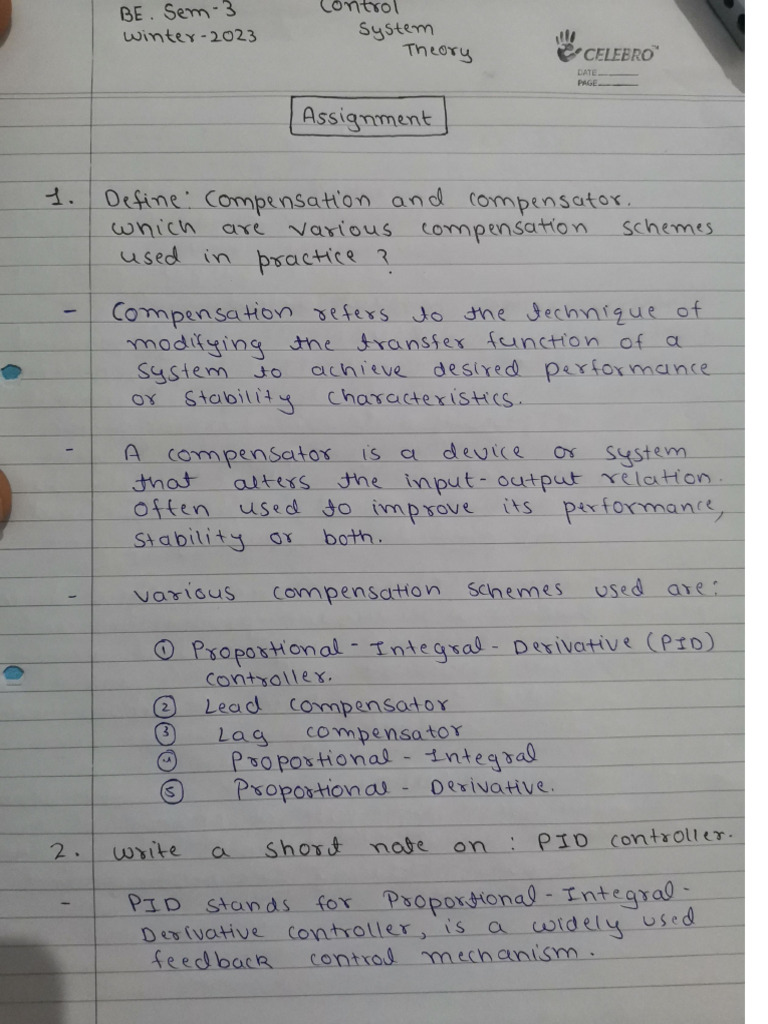 BE. Sem-3
Winter-2023
Control
System
Theory
CELEBRO
DATE
PAGE
Assignment
1. Define: Compensation and compensator.
which are various compensation schemes
used in practice?
- Compensation refers to the technique of
modifying the transfer function of a
system to achieve desired performance
or stability characteristics.
- A compensator is a device or system
that alters the input-output relation.
Often used to improve its performance,
stability or both.
- various compensation schemes used are:
① Proportional-Integral-Derivative (PID)
controller.
② Lead compensator
③ Lag compensator
④ Proportional-Integral
⑤ Proportional-Derivative.
2. Write a short note on: PID controller.
- PID stands for Proportional-Integral-
Derivative controller, is a widely used
feedback control mechanism.